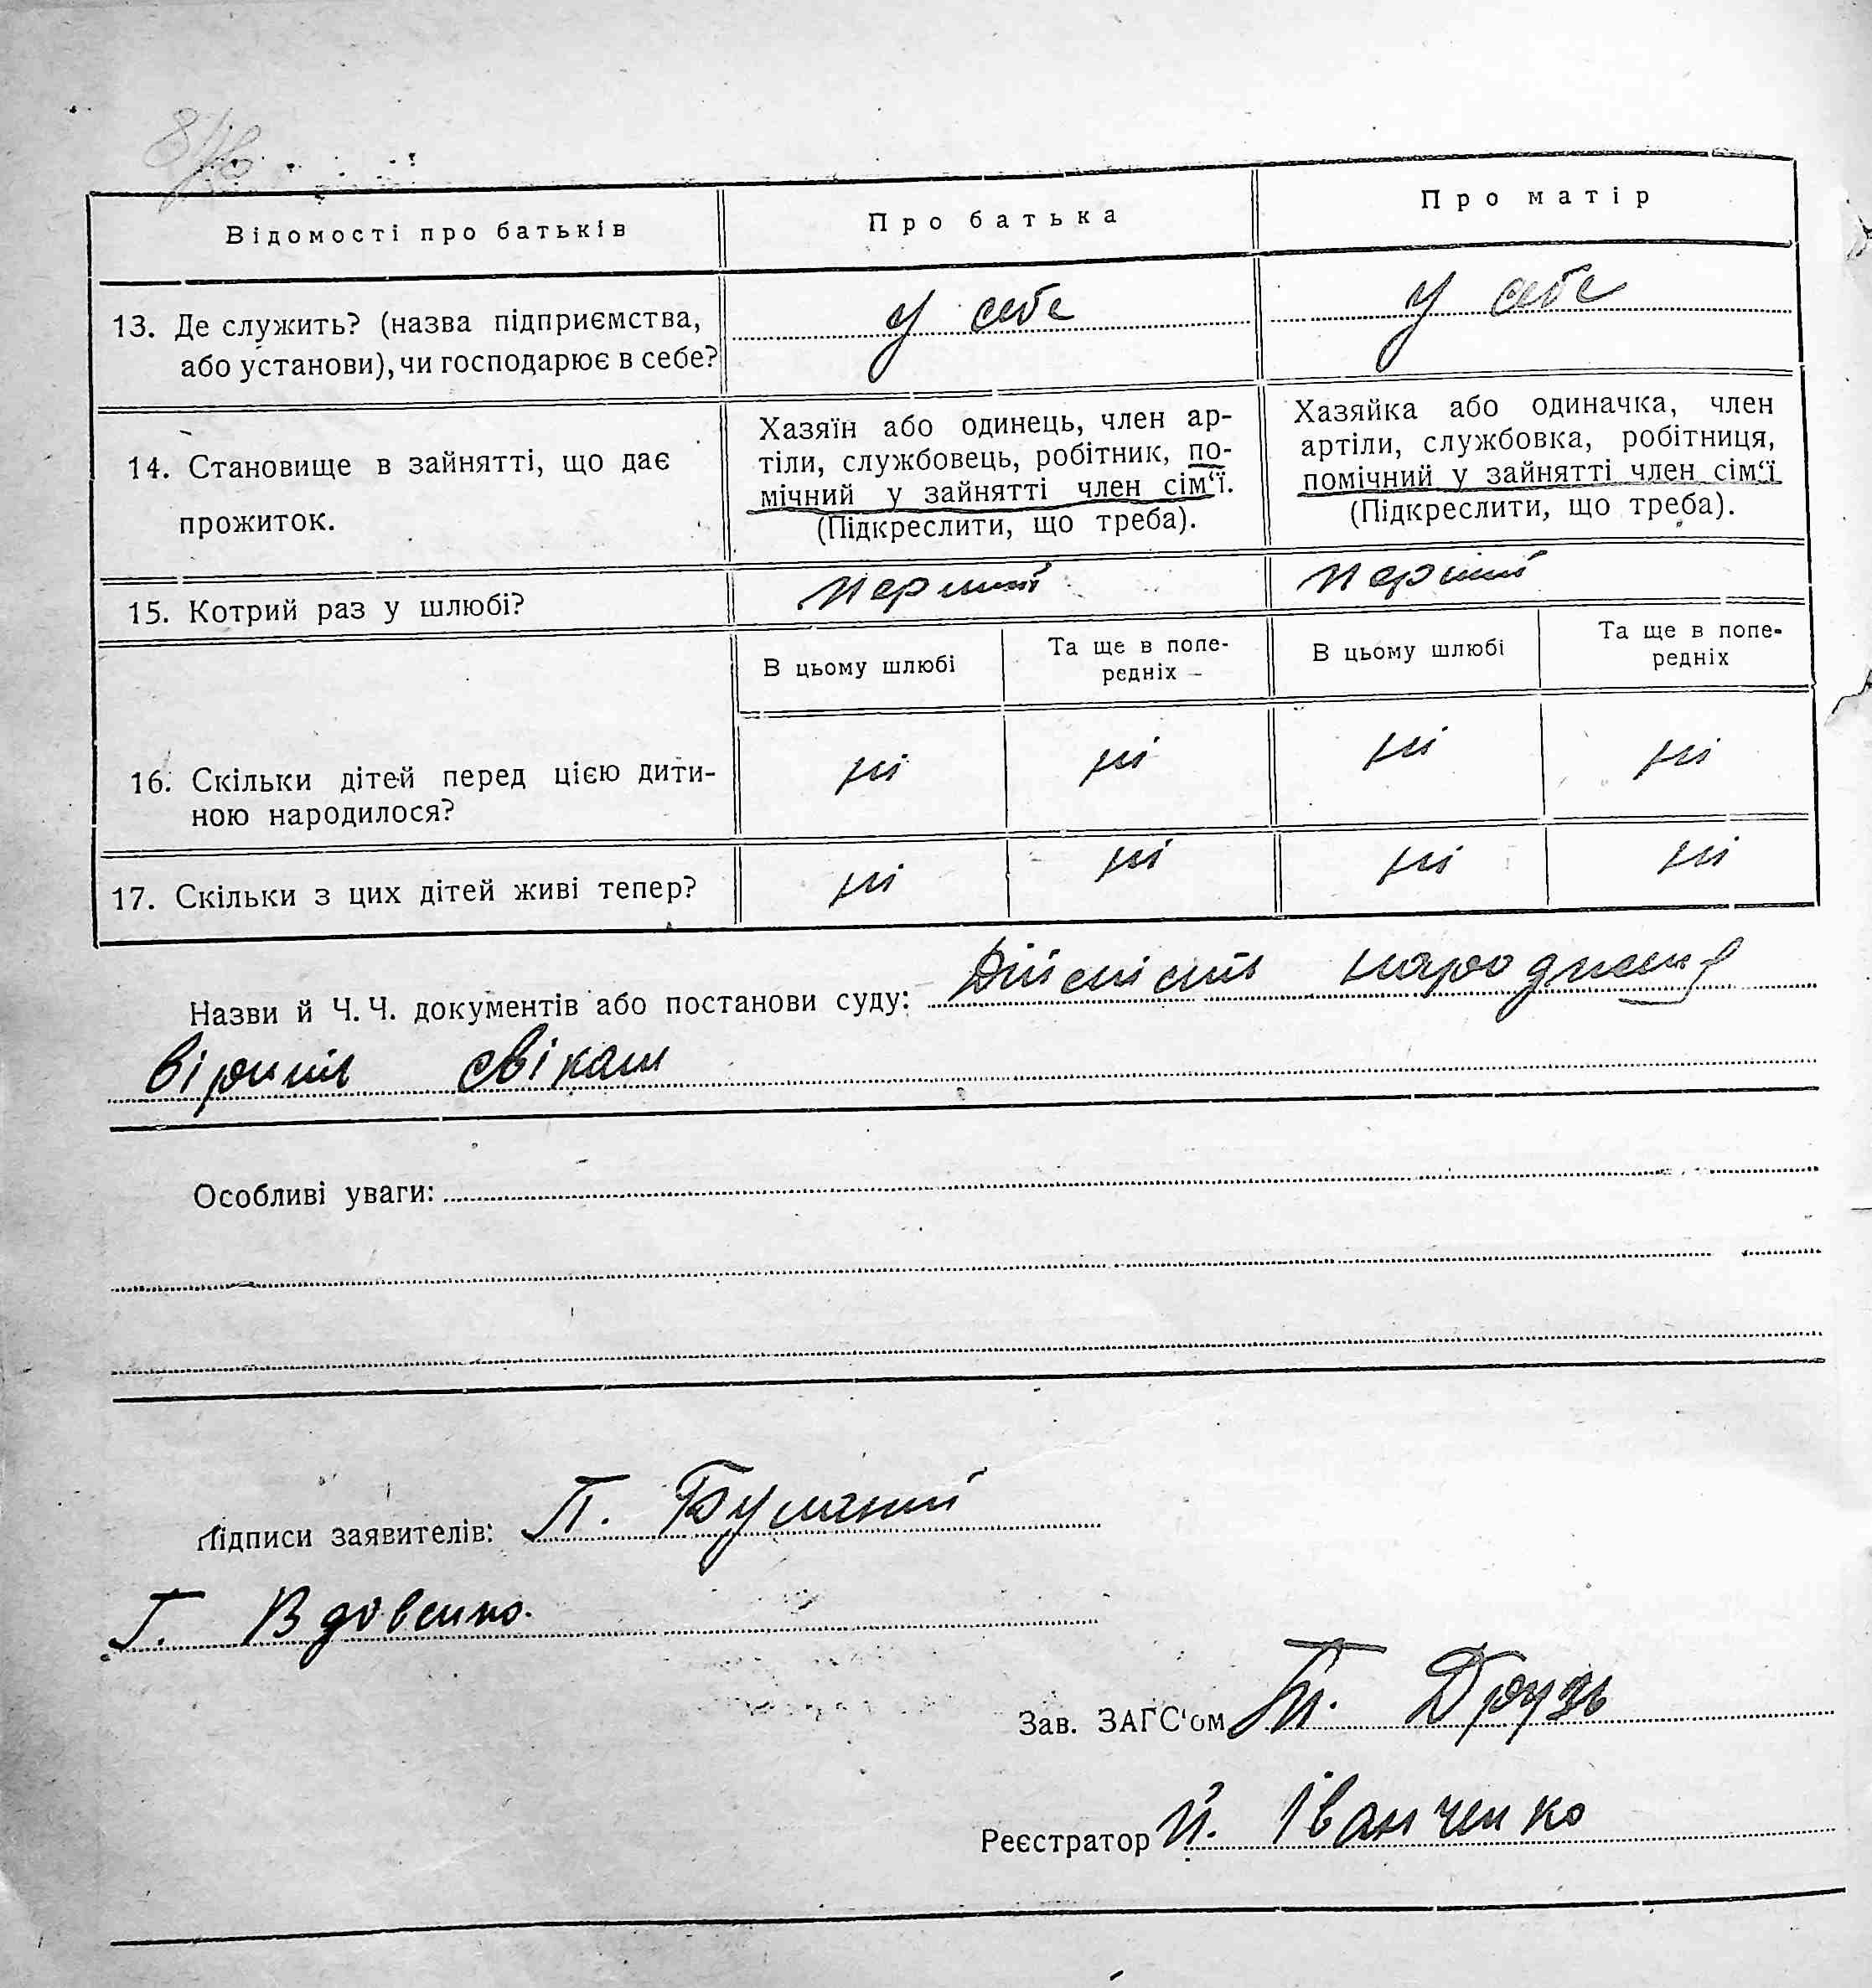 Відомості про батьків
Про батька
Про матір
13. Де служить? (назва підприємства,
або установи), чи господарює в себе?
у себе
у себе
14. Становище в зайнятті, що дає
прожиток.
Хазяїн або одинець, член ар-
тіли, службовець, робітник, по-
мічний у зайнятті член сім'ї.
(Підкреслити, що треба).
Хазяйка або одиначка, член
артіли, службовка, робітниця,
помічний у зайнятті член сім'ї
(Підкреслити, що треба).
15. Котрий раз у шлюбі?
перший
перший
В цьому шлюбі
Та ще в попе-
редніх
В цьому шлюбі
Та ще в попе-
редніх
16. Скільки дітей перед цією дити-
ною народилося?
ні
ні
ні
ні
17. Скільки з цих дітей живі тепер?
ні
ні
ні
ні
Назви й Ч. Ч. документів або постанови суду: Дійсність
Особливі уваги:
Підписи заявителів: П.
Г. Вдовенко.
Зав. ЗАГС'ом Т. Друзь
Реєстратор Й. Іванченко